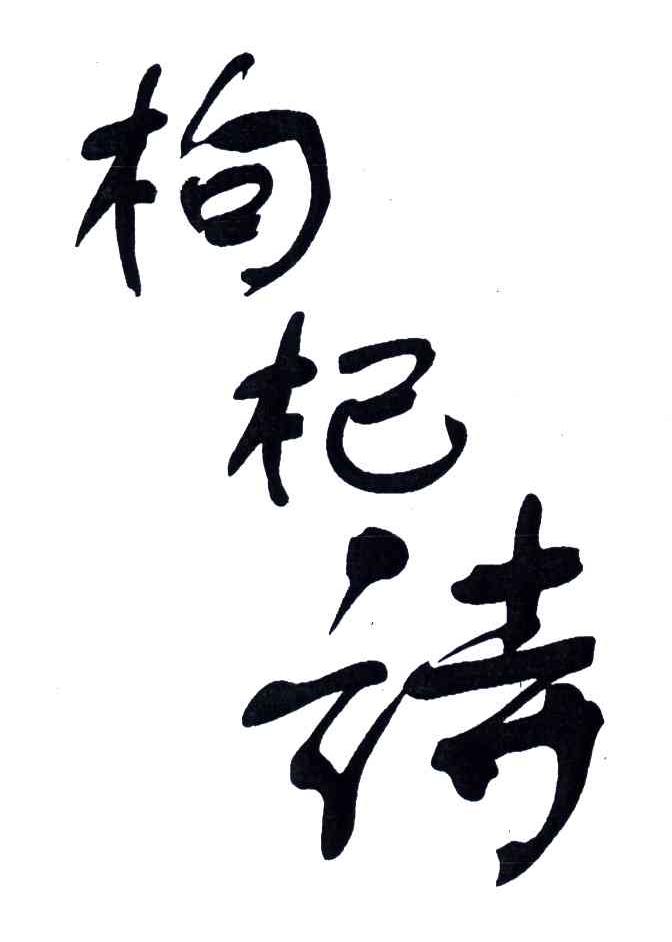 枸杞诗